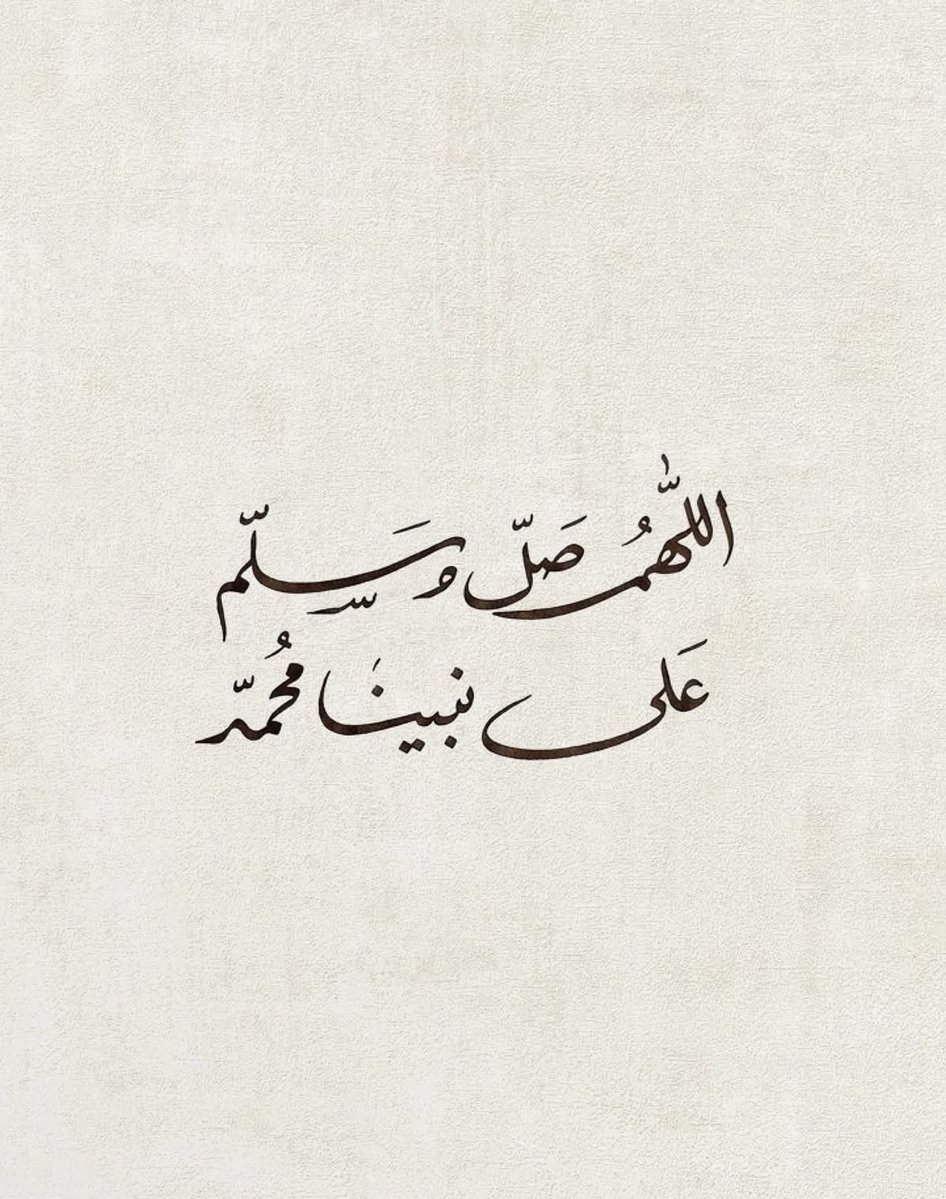 اللّٰهُم صَلّ وسَلّم
عَلى نبينَا مُحمّد